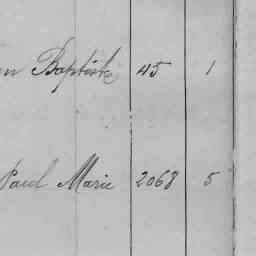 n Baptiste 45 1
Paul Marie 2068 5